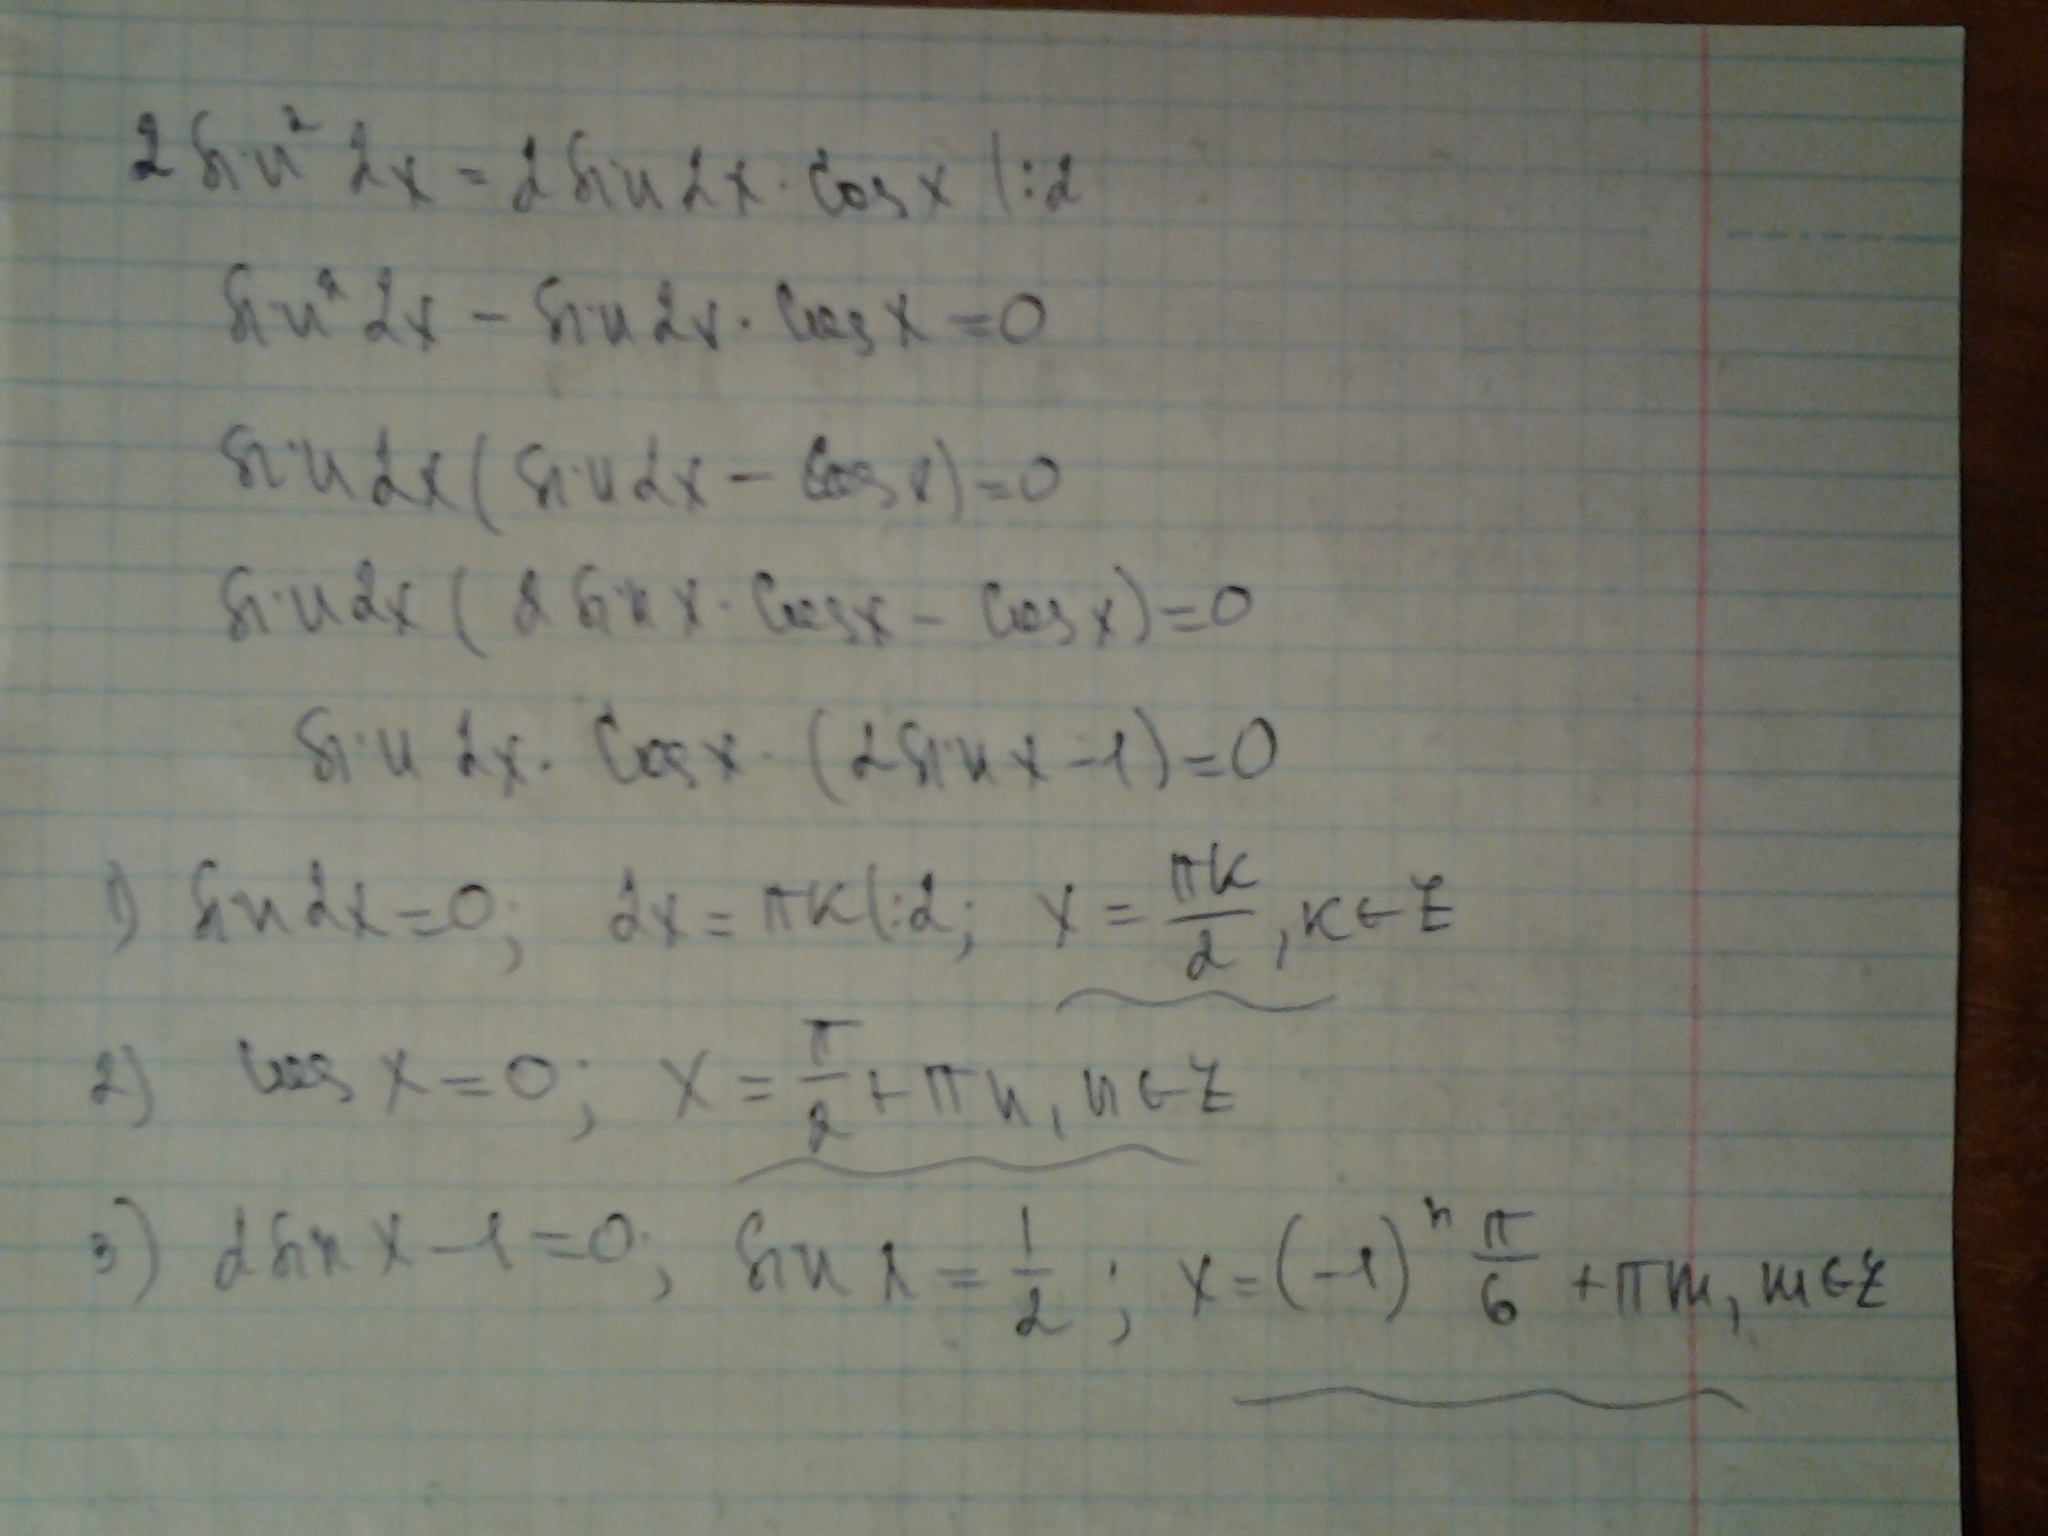 2 sin² 2x = 2 sin 2x · cos x |:2
sin² 2x – sin 2x · cos x = 0
sin 2x ( sin 2x – cos x ) = 0
sin 2x ( 2 sin x · cos x – cos x ) = 0
sin 2x · cos x · (2 sin x – 1) = 0
1) sin 2x = 0; 2x = πk |:2; x = πk/2, k ∈ Z
2) cos x = 0; x = π/2 + πn, n ∈ Z
3) 2 sin x – 1 = 0; sin x = 1/2; x = (–1)ⁿ π/6 + πm, m ∈ Z